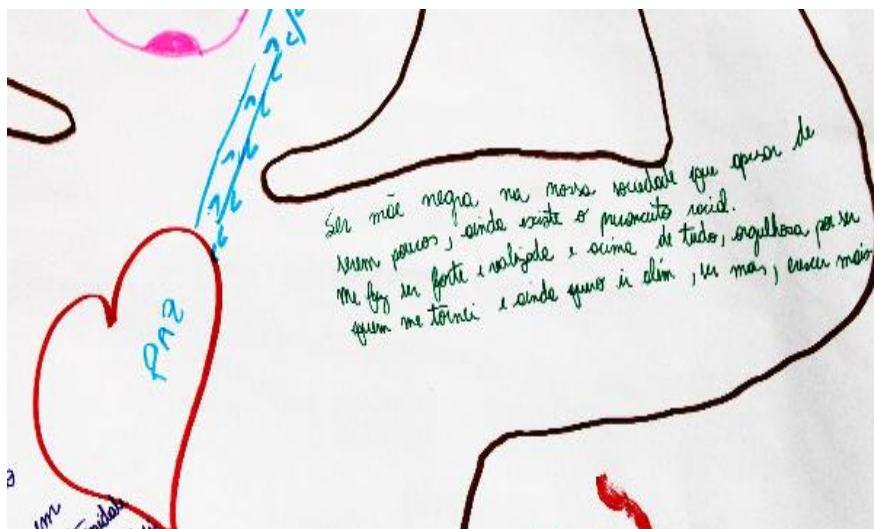 Ser mãe negra na nossa sociedade que apesar de
serem poucos, ainda existe o preconceito racial.
me faz ser forte e realizada e acima de tudo, orgulhosa por ser
quem me tornei e ainda quero ir além, ser mais, crescer mais
PAZ
em